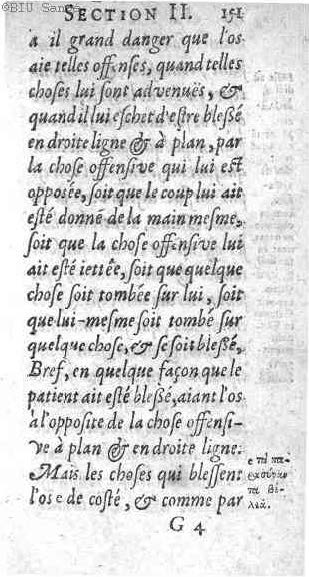 ©BIU Santé
SECTION II. 151
a il grand danger que l'os
aie telles offenses, quand telles
choses lui sont advenuës, &
quand il lui eschet d'estre blessé
en droite ligne & à plan, par
la chose offensive qui lui est
opposée, soit que le coup lui ait
esté donné de la main mesme,
soit que la chose offensive lui
ait esté iettêe, soit que quelque
chose soit tombée sur lui, soit
que lui-mesme soit tombé sur
quelque chose, & se soit blessé,
Bref, en quelque façon que le
patient ait esté blessé, aiant l'os
à l'opposite de la chose offensi-
ve à plan & en droite ligne.
Mais les choses qui blessent
l'os e de costé, & comme par
G 4
e τὰ πα-
τα βέ-
λεα.